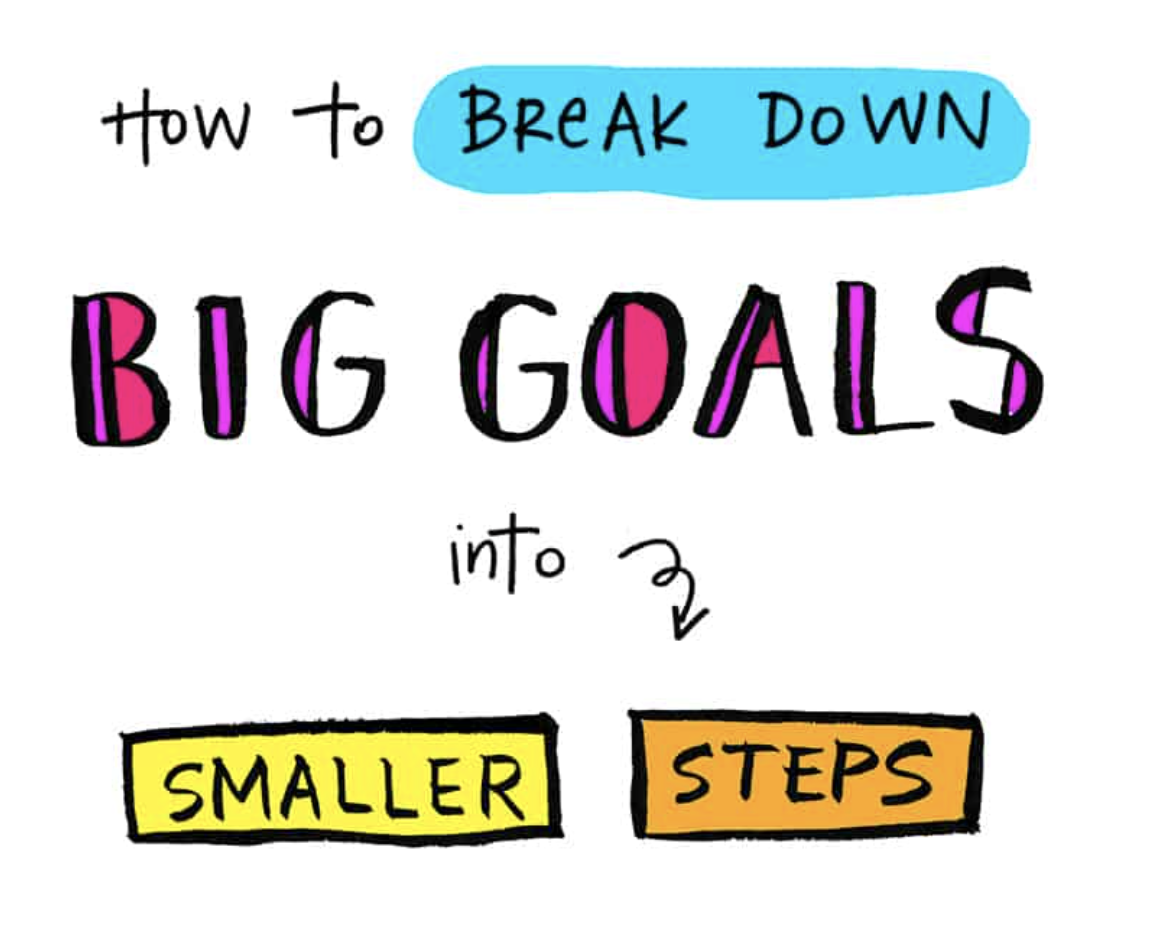 How to BReAK DoWN
BIG GOALS
into
SMALLER STEPS